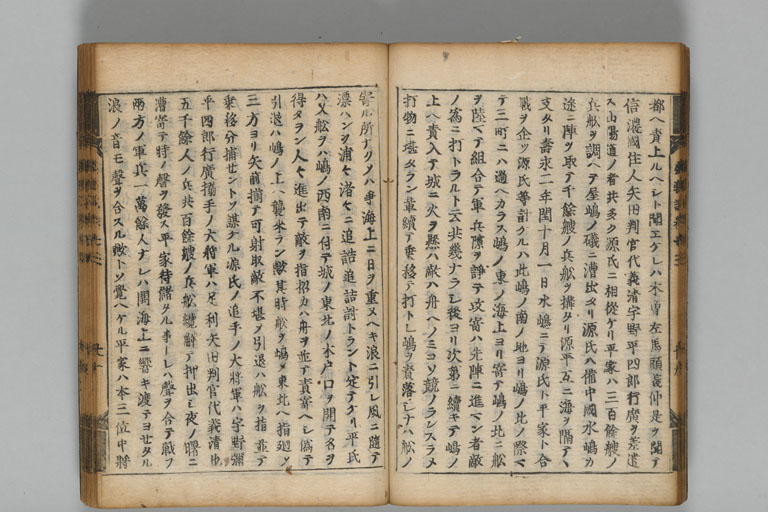 都ヘ責上ルヘシト聞エケレハ木曽左馬頭義仲是ヲ聞テ
信濃國住人矢田判官代義清宇野平四郎行廣ヲ差遣
ス山陽道ノ者共多ク源氏ニ相從ケリ平家ハ三百餘艘ノ
兵船ヲ調ヘテ屋嶋ノ礒ニ漕出タリ源氏ハ備中國水嶋カ
途ニ陣ヲ取テ千餘艘ノ兵船ヲ構タリ源平互ニ海ヲ隔テヽ
支タリ壽永二年閏十月一日水嶋ニテ源氏ト平家ト合
戰ヲ企ツ源氏等計ケルハ此嶋ノ南ノ地ヨリ嶋ノ北ノ際マ
テ三町ニハ過ヘカラス嶋ノ東ノ海上ヨリ寄テ嶋ノ北ニ船
ヲ陸マテ組合テ軍兵陣ヲ諍テ攻寄ハ先陣ニ進マン者敵
ノ為ニ打トラルト云共幾ナラシ後ヨリ次第ニ續キテ嶋ノ
上ヘ責入テ城ニ火ヲ懸ハ敵ハ舟ヘノミコソ競ノランスラメ
打物ニ堪タラン輩續テ乗移テ打トレ嶋ヲ責落シナハ船ノ
寄ル所ナリノハ争海上ニ日ヲ重ヌヘキ浪ニ引レ風ニ隨テ
漂ハンヲ浦々渚々ニ追詰追詰討トラント定テケリ平氏
ハ又船ヲハ嶋ノ西南ニ付テ城ノ東北ノ木戸口ヲ開テ名ヲ
得タラン人々進出テ敵ヲ指招カハ舟ヲ並テ責寄ヘシ偽テ
引退ハ嶋ノ上ヘ襲来ラン歟其時船ヲ嶋ノ東北ヘ指廻シ
三方ヨリ矢前揃テ可射取敵不堪シテ引退ハ船ヲ指並テ
乗移分捕セントソ議ケル源氏ノ追手ノ大将軍ハ宇野彌
平四郎行廣搦手ノ大将軍ハ足利矢田判官代義清也
五千餘人ノ兵共百餘艘ノ兵船纜解テ押出シ夜ノ曙ニ
漕寄テ時ノ聲ヲ發ス平家待儲タル事ナレハ聲ヲ合テ戰フ
兩方ノ軍兵一萬餘人ナレハ閧海上ニ響キ渡テヨセタル
浪ノ音モ聲ヲ合スル歟トソ覺ヘケル平家ハ本三位中将